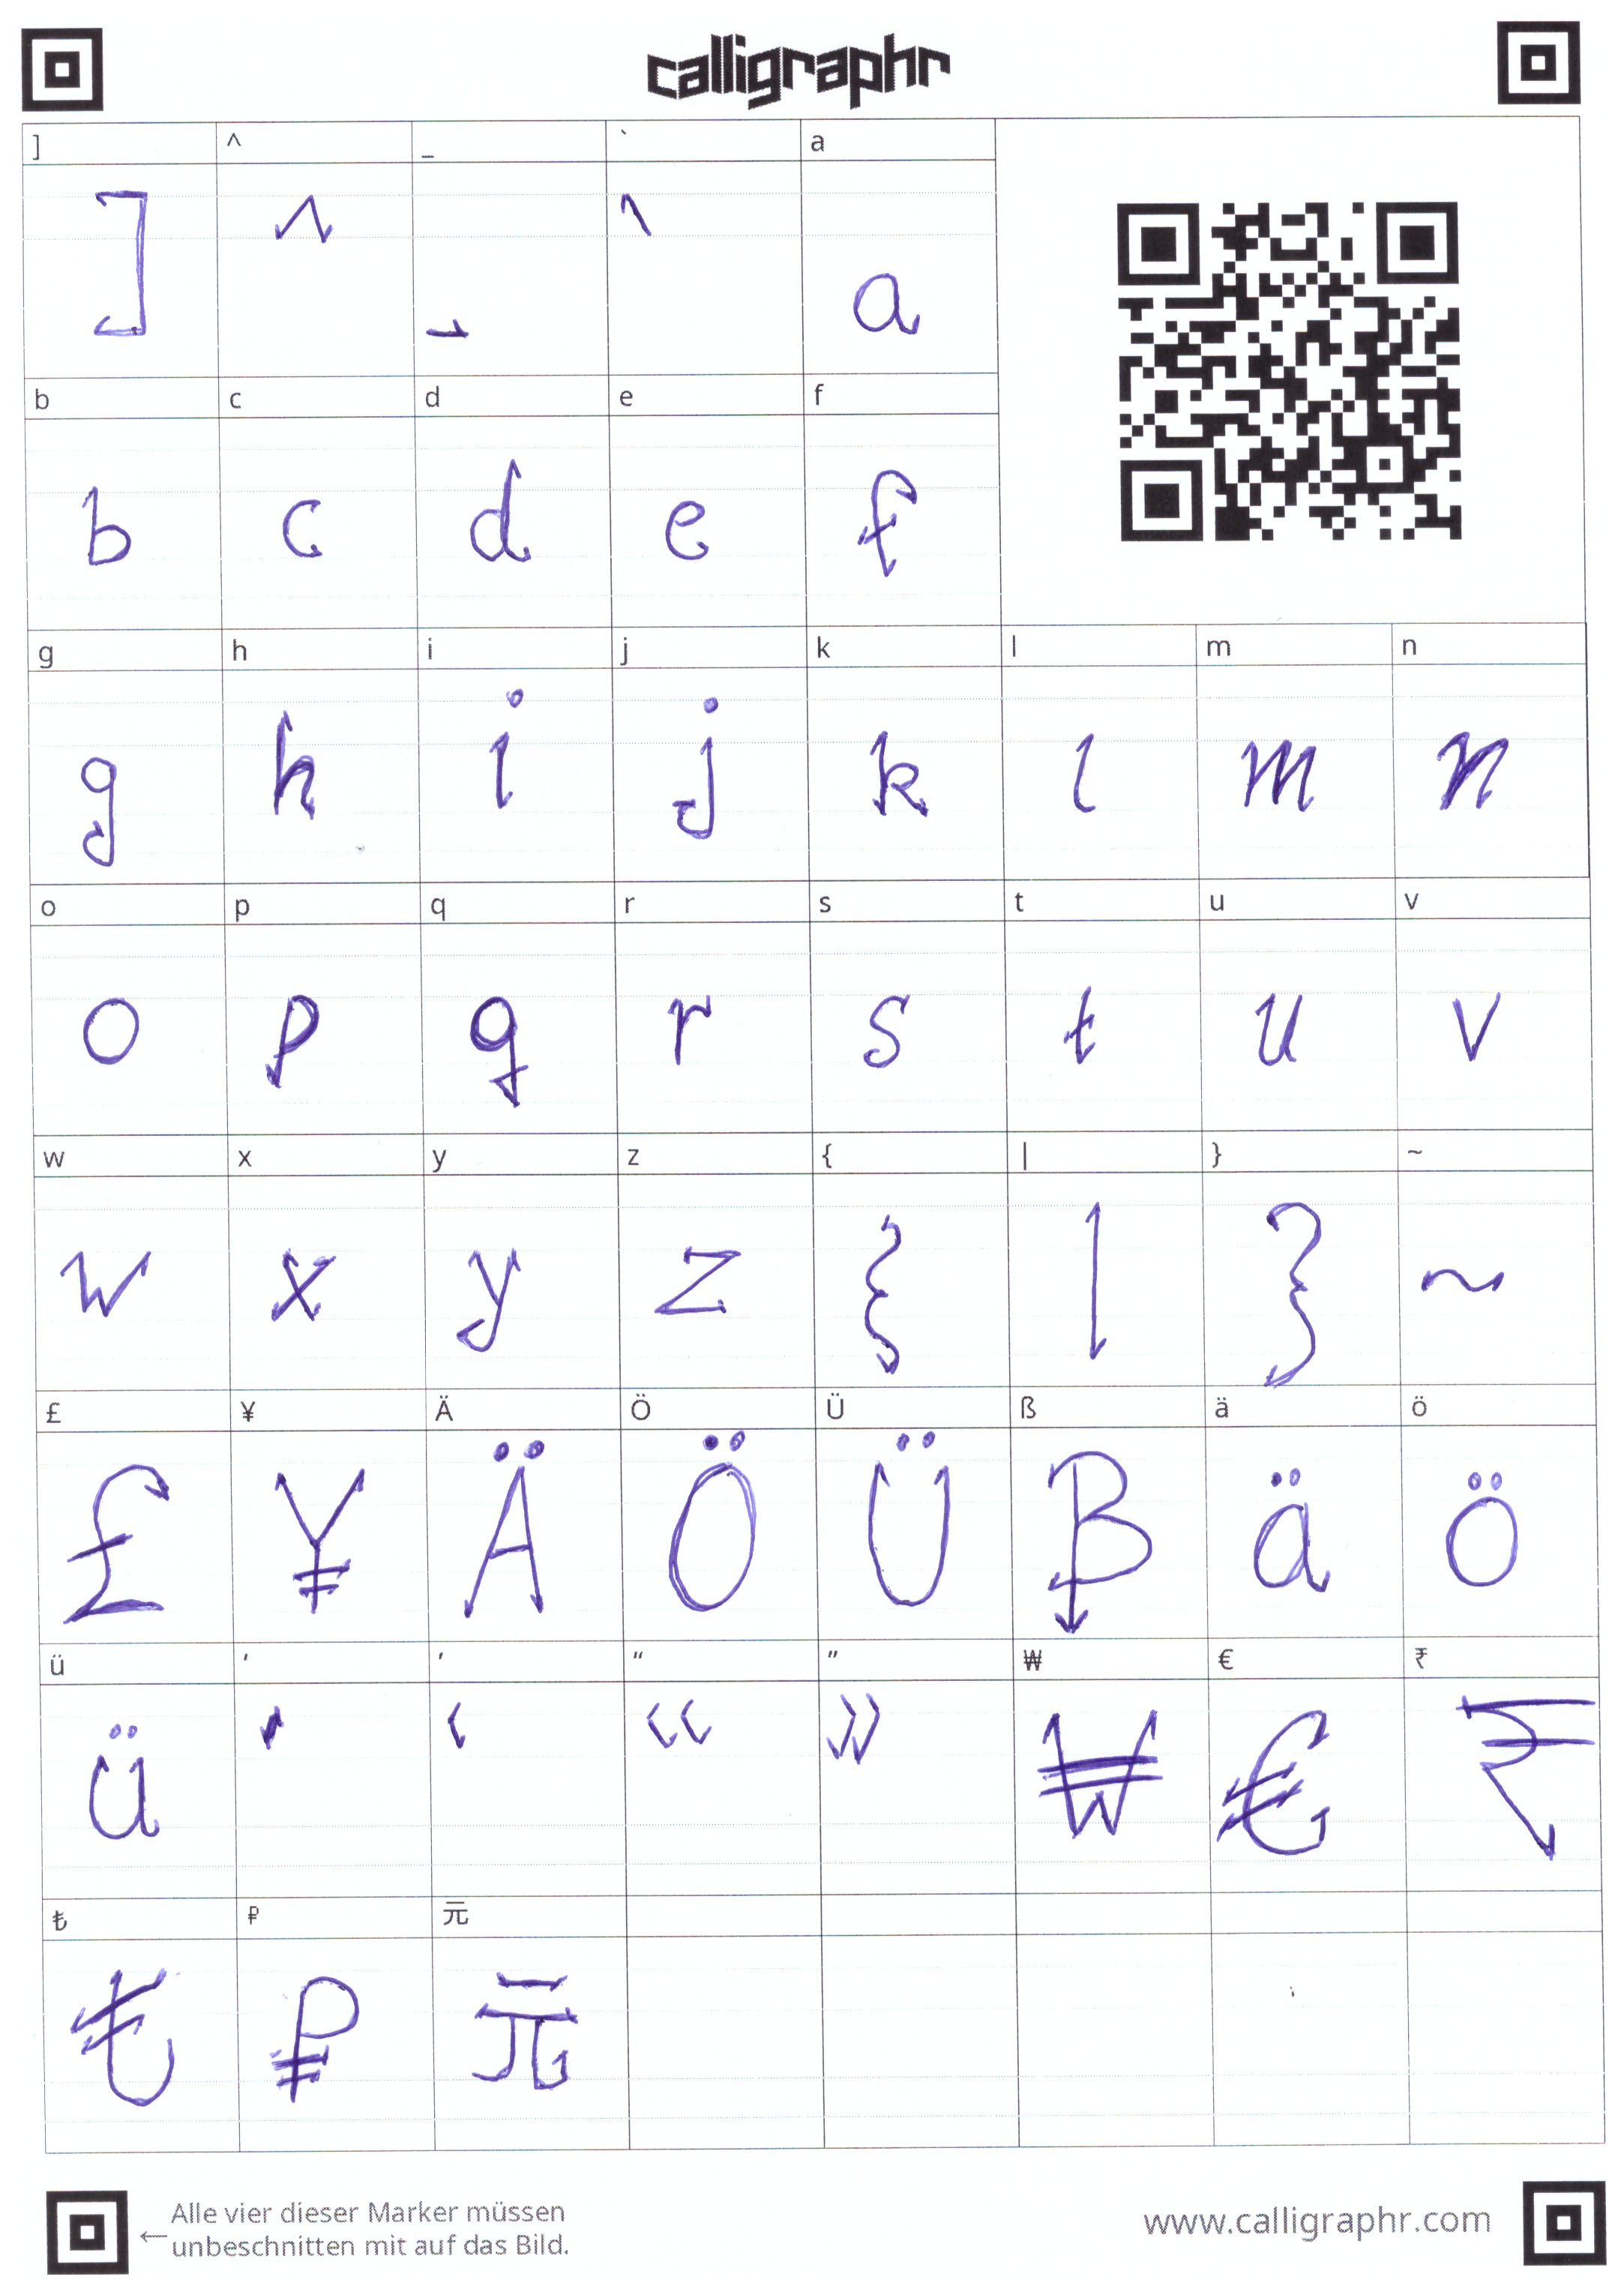 calligraphr
] ^ _ ` a
] ^ _ ` a
b c d e f
b c d e f
g h i j k l m n
g h i j k l m n
o p q r s t u v
o p q r s t u v
w x y z { | } ~
w x y z { | } ~
£ ¥ Ä Ö Ü ß ä ö
£ ¥ Ä Ö Ü ß ä ö
ü ‘ ’ “ ” ₩ € ₹
ü ‘ ‹ « » ₩ € ₹
₺ ₽ 元
₺ ₽ 元
Alle vier dieser Marker müssen
← unbeschnitten mit auf das Bild.
www.calligraphr.com